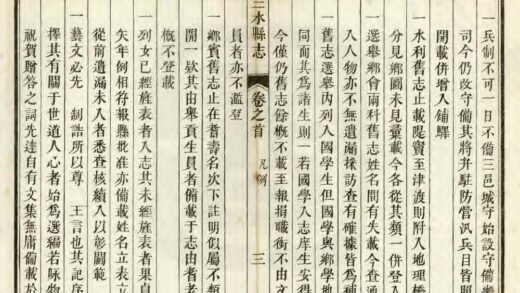 一兵制不可一日不備三邑城守始設守備
司今仍改守備其將弁駐防營汛兵目皆照
開載併增入鋪驛
一水利舊志止載隄竇至津渡則附入地理橋
分見鄉圖未見彙載今各從其類一併登入
一選舉鄉會兩科舊志姓名間有失載今查通
人人物亦不無遺漏採訪查有確據皆為補
一舊志選舉內列入國學生但國學與鄉學
同而其為諸生則一若國學入志庠生安得
今僅仍舊志餘概不載至報捐職銜不由文
員者亦不濫登
三水縣志
卷之首
凡例
三
一鄉賓舊志止在耆壽名次下註明似屬不類
開一欵其由舉貢生員者備載于志由耆老
概不登載
一列女已經旌表者入志其未經旌表者果貞
矢年例相符報縣批准亦備載姓名立表立
從前遺漏未入者悉查核續入以彰闢範
一藝文必先 制誥所以尊 王言也其記序
擇其有關于世道人心者始為選編若詠物
祝賀贈答之詞先達自有文集無庸備載於